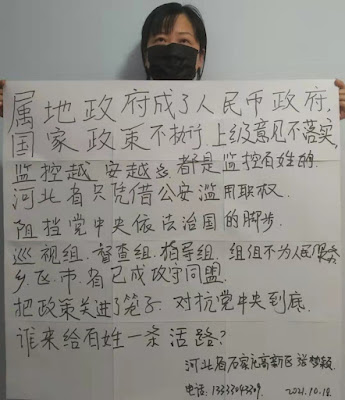 属地政府成了人民币政府,
国家政策不执行.上级意见不落实,
监控越安越多都是监控百姓的.
河北省只凭借公安滥用职权.
阻挡党中央依法治国的脚步.
巡视组.督查组.指导组.组组不为人民服务
乡.区.市.省已成攻守同盟.
把政策关进了笼子.对抗党中央到底.
谁来给百姓一条活路?
河北省石家庄高新区 张梦颖.
电话: 13333043309. 2021.10.12.